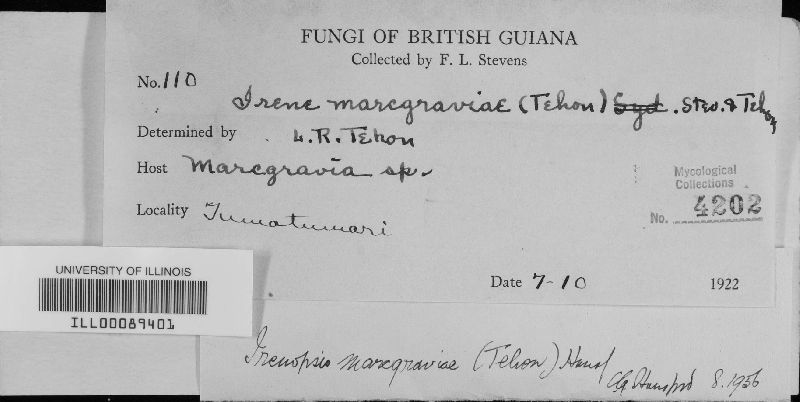 FUNGI OF BRITISH GUIANA
Collected by F. L. Stevens
No. 110
Irene marcgraviae (Tehon) Syd. Stev. & Tehon
Determined by L. R. Tehon
Host Marcgravia sp.
Mycological
Collections
Locality Tumatumari
No. 4202
Date 7-10 1922
UNIVERSITY OF ILLINOIS
ILL00089401
Irenopsis marcgraviae (Tehon) Hansf
Hansford 8.1956